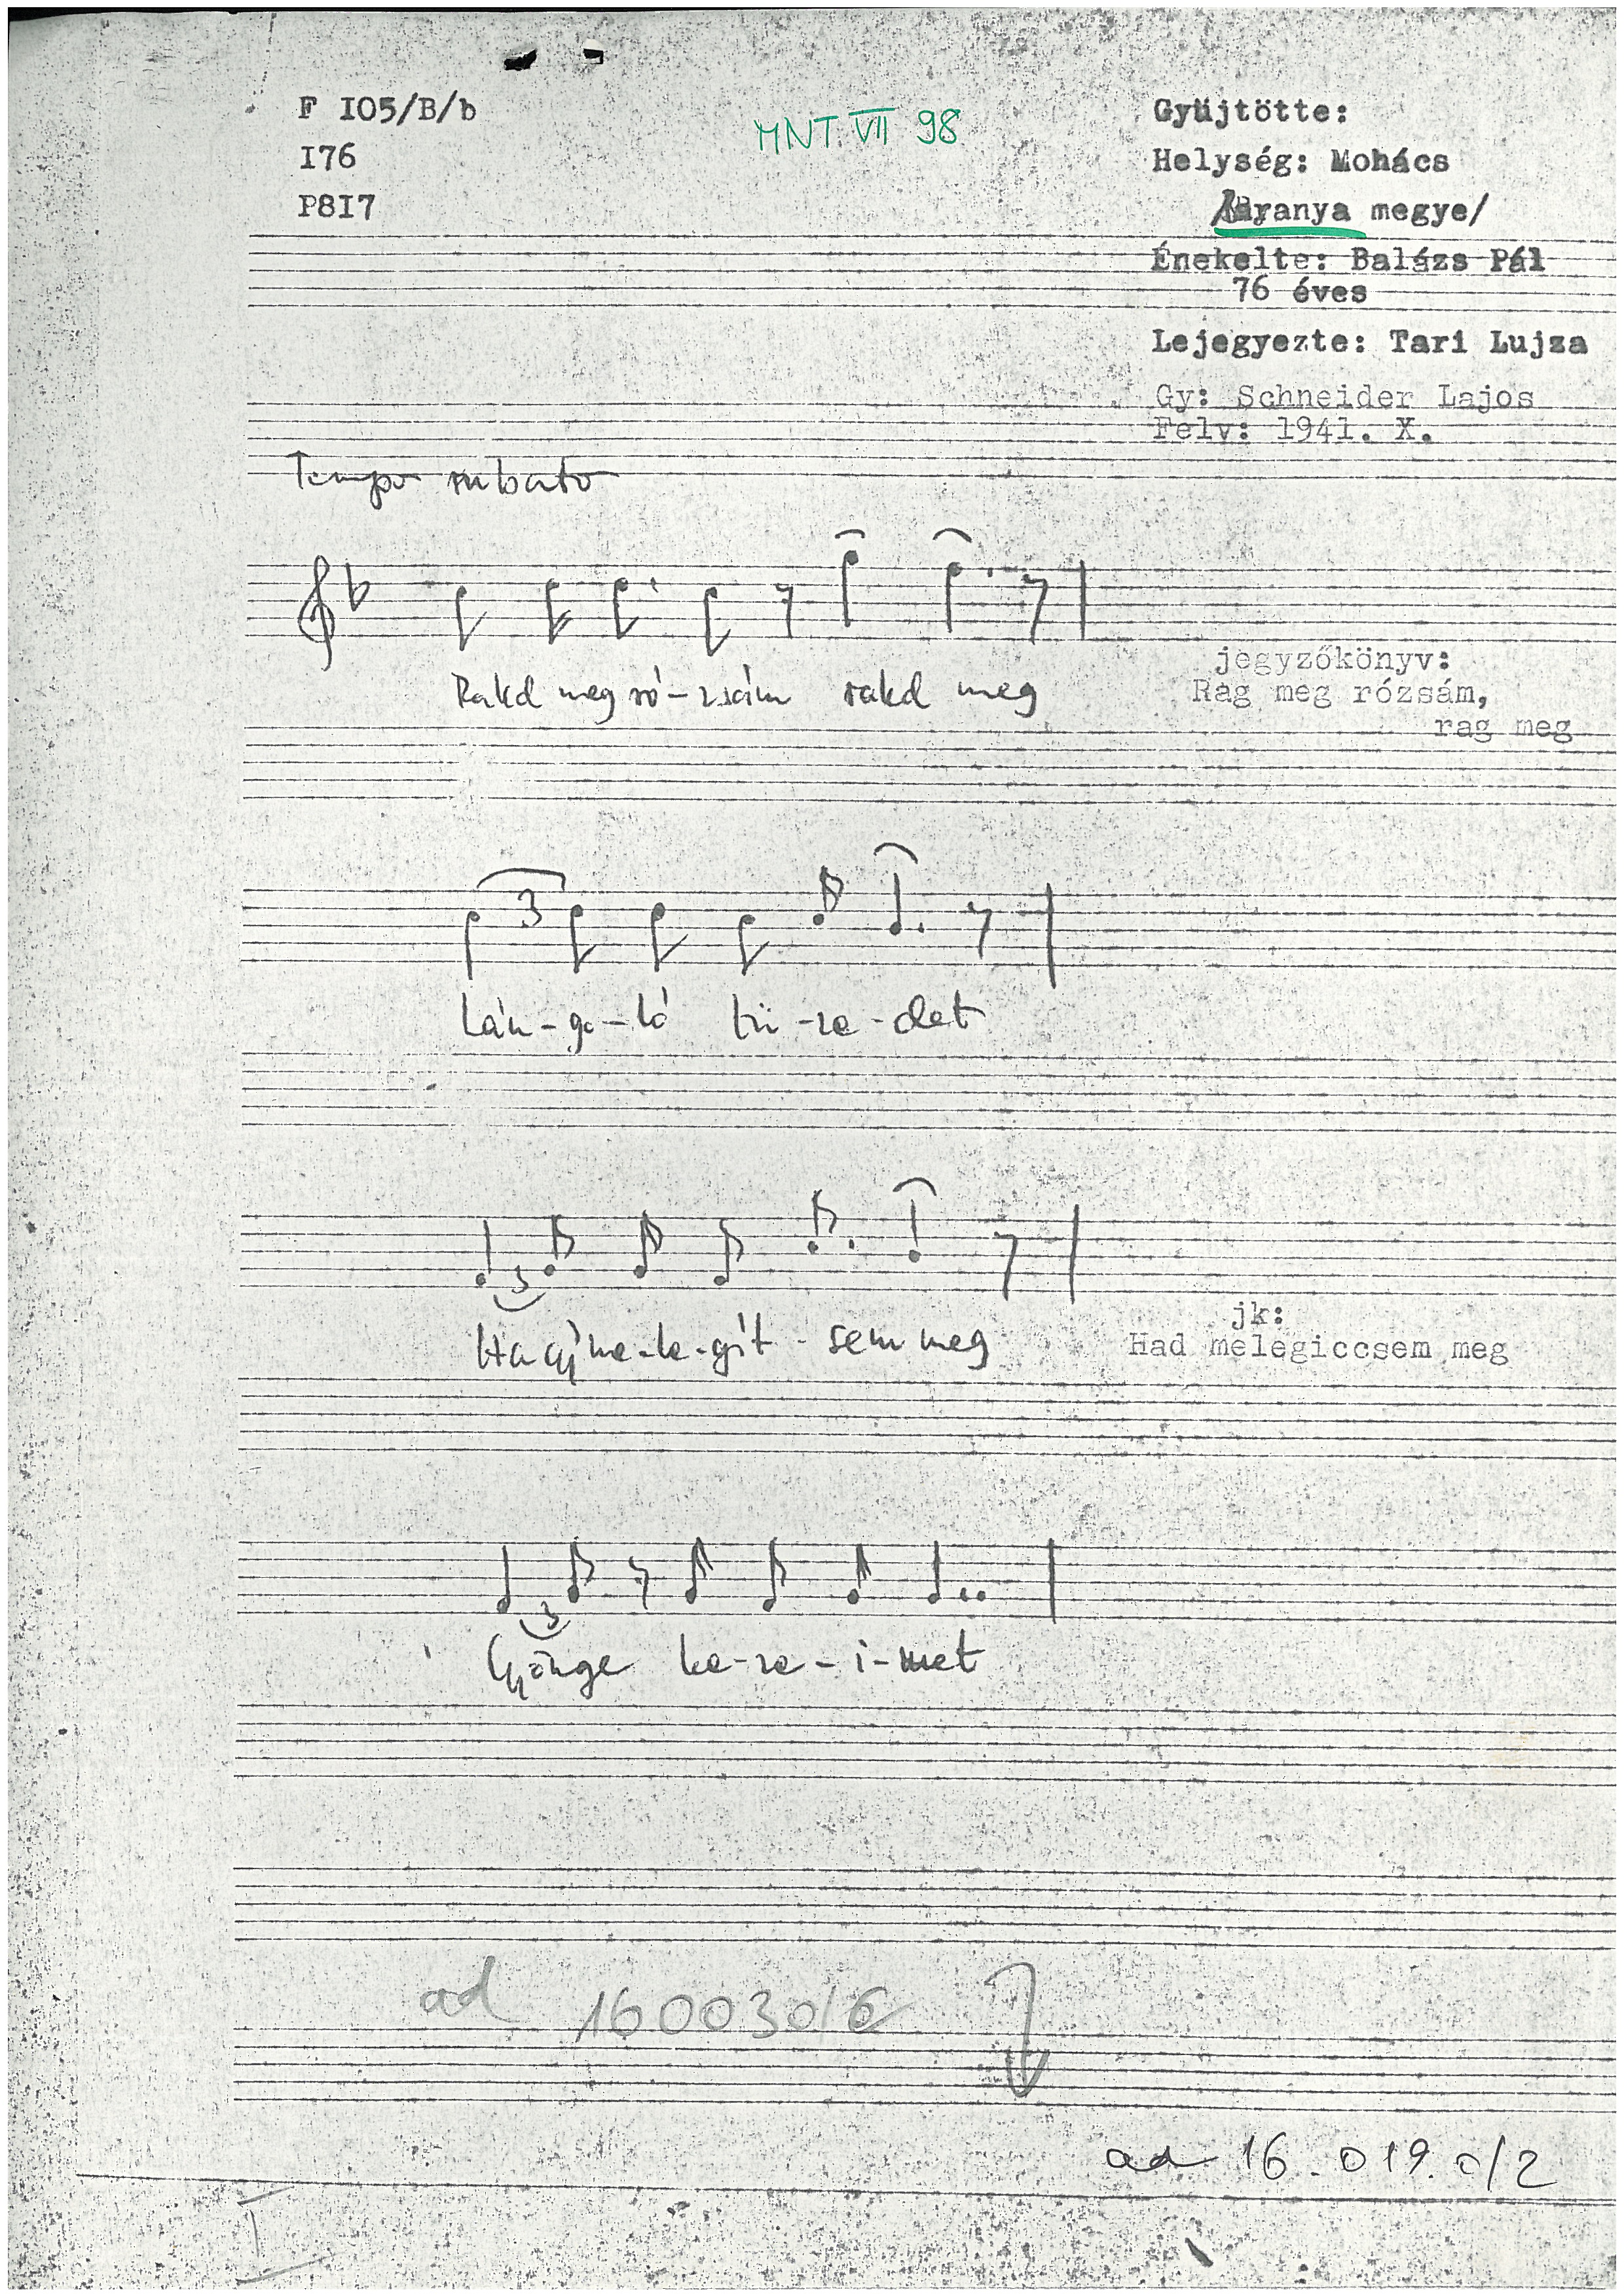 F I05/B/b
I76
P8I7
MNT. VII 98
Gyüjtötte:
Helység: Mohács
/Baranya megye/
Énekelte: Balázs Pál
76 éves
Lejegyezte: Tari Lujza
Gy: Schneider Lajos
Felv: 1941. X.
Tempo rubato
Rakd meg ró-zsám rakd meg
jegyzőkönyv:
Rag meg rózsám,
rag meg
3
Lán-go-ló tü-ze-det
3
Hagy me-le-gít-sem meg
jk:
Had melegiccsem meg
3
Gyönge ke-ze-i-met
ad 160030/6
ad 16.019.0/2